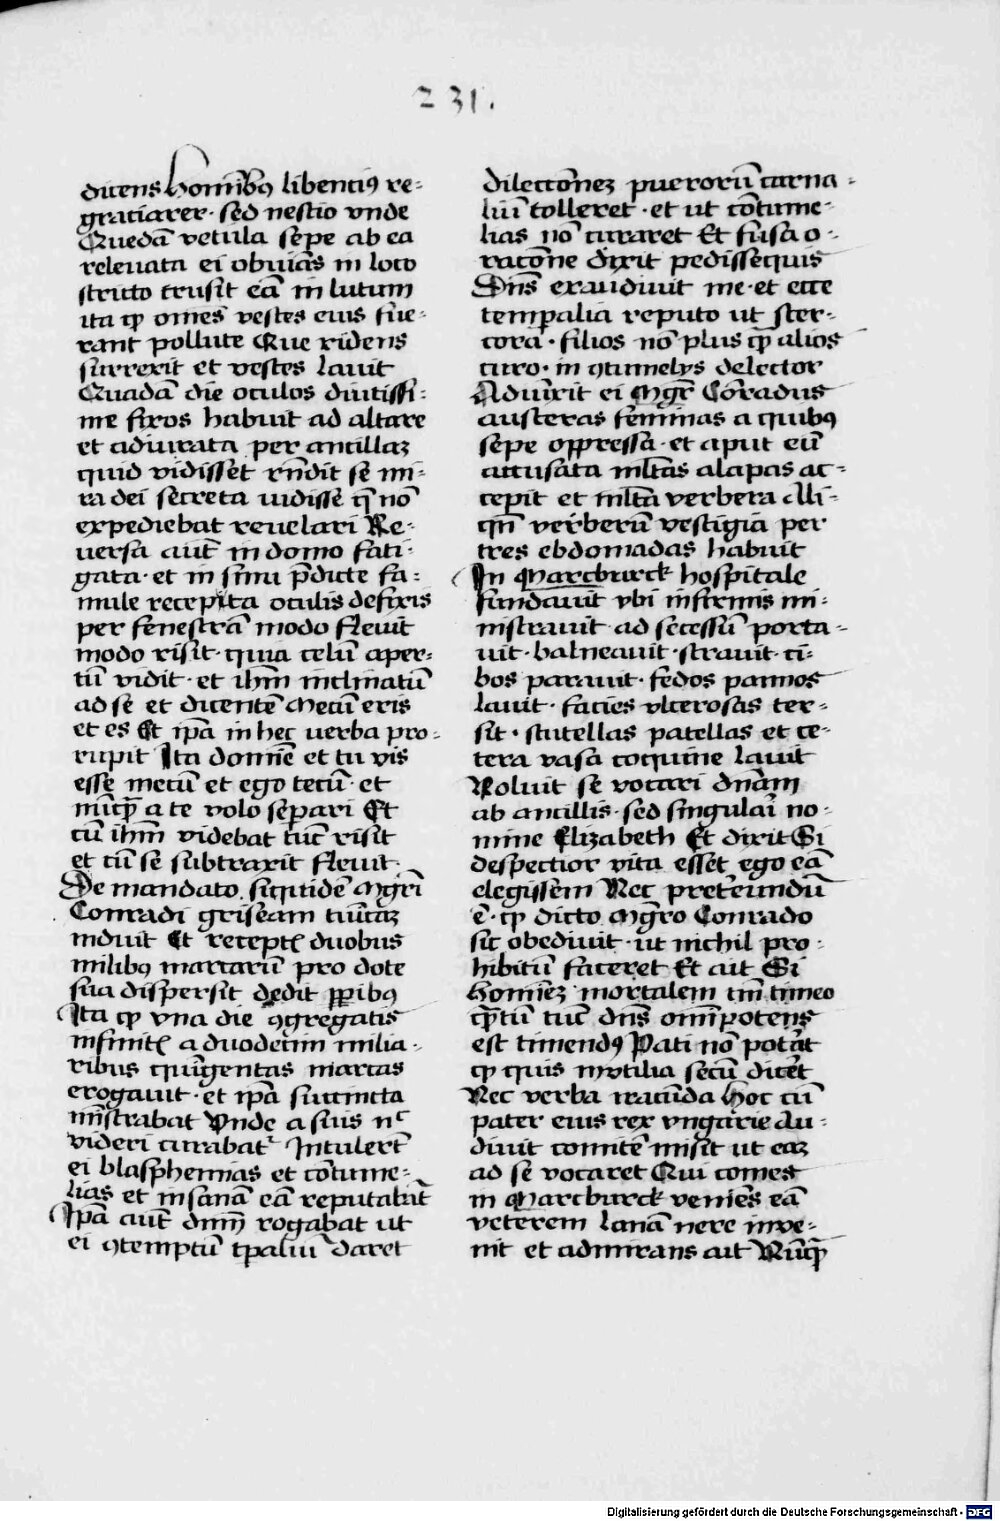 231.
dicens Hominibꝰ libenciꝰ re-
graciarer · sed nescio vnde
Quedā vetula sepe ab ea
releuata ei obuiās in loco
stricto trusit eā in lutum
ita ꝙ om̄es vestes eius fue-
rant pollute Que ridens
surrexit et vestes lauit
Quadā die oculos diutissi-
me fixos habuit ad altare
et adiurata per ancillaꝫ
quid vidisset rn̄dit se mi-
ra dei secreta uidisse q̄ nō
expediebat reuelari Re-
uersa aut̄ in domo fati-
gata · et in sinu p̄dicte fa-
mule recepta oculis defixis
per fenestrā modo fleuit
modo risit · quia celū aper-
tū vidit · et ihm̄ inclinatū
ad se et dicentē Mecū eris
et es Et ip̄a in hec uerba pro-
rupit Ita domīe et tu vis
esse mecū et ego tecū · et
nūqꝫ a te volo separi Et
cū ihm̄ videbat tūc risit
et cū se subtraxit fleuit
De mandato siquidē Mgr̄i
Conradi griseam tunicaꝫ
induit Et receptꝭ duobus
milibꝰ marcarū pro dote
sua dispersit dedit pꝑibꝰ
Ita ꝙ vna die ꝯgregatis
infinitꝭ a duodecim milia-
ribus quīgentas marcas
erogauit · et ip̄a succincta
mīstrabat Vnde a suis nᶜ
videri curabat᷑ Intulerūt
ei blasphemias et cōtume-
lias et insanā eā reputabāt
Ip̄a aut̄ dnm̄ rogabat ut
ei ꝯtemptū tp̄aliū daret
dilectōnez puerorū carna-
liū tolleret · et ut cōtume-
lias nō curaret Et fusa o-
racōne dixit pedissequis
Dn̄s exaudiuit me · et ecce
temp̄alia reputo ut ster-
cora · filios nō plus ꝙ̄ alios
curo · in ꝯtumelys delector
Aduīxit ei Mgr̄ Cōradus
austeras feminas a quibꝰ
sepe oppressa · et aput eū
accusata ml̄tas alapas ac-
cepit et ml̄ta verbera Ali-
qn̄ verberū vestigia per
tres ebdomadas habuit
In Marcburck hospitale
fundauit vbi infirmis mi-
nistrauit ad secessū porta-
uit · balneauit · strauit · ci-
bos parauit · fedos pannos
lauit · facies vlcerosas ter-
sit · scutellas patellas et ce-
tera vasa coquine lauit
Noluit se vocari dn̄am
ab ancillis · sed singulari no-
mine Elizabeth Et dixit Si
despectior vita esset ego eā
elegissem Nec pret᷑eundū
ē · ꝙ dicto Mgr̄o Conrado
sic obediuit · ut nichil pro-
hibitū faceret Et ait Si
Homīeꝫ mortalem tm̄ timeo
qn̄tū tūc dn̄s omīpotens
est timendꝰ Pati nō pot᷑at
ꝙ quis inutilia secū dic᷑et
Nec verba iracūda Hoc cū
pater eius rex vngarie Au-
diuit comitē misit ut eaꝫ
ad se vocaret Qui comes
in Marcburck veniēs eā
veterem lanā nere inve-
nit et admirans ait Nūqꝫ
Digitalisierung gefördert durch die Deutsche Forschungsgemeinschaft - DFG